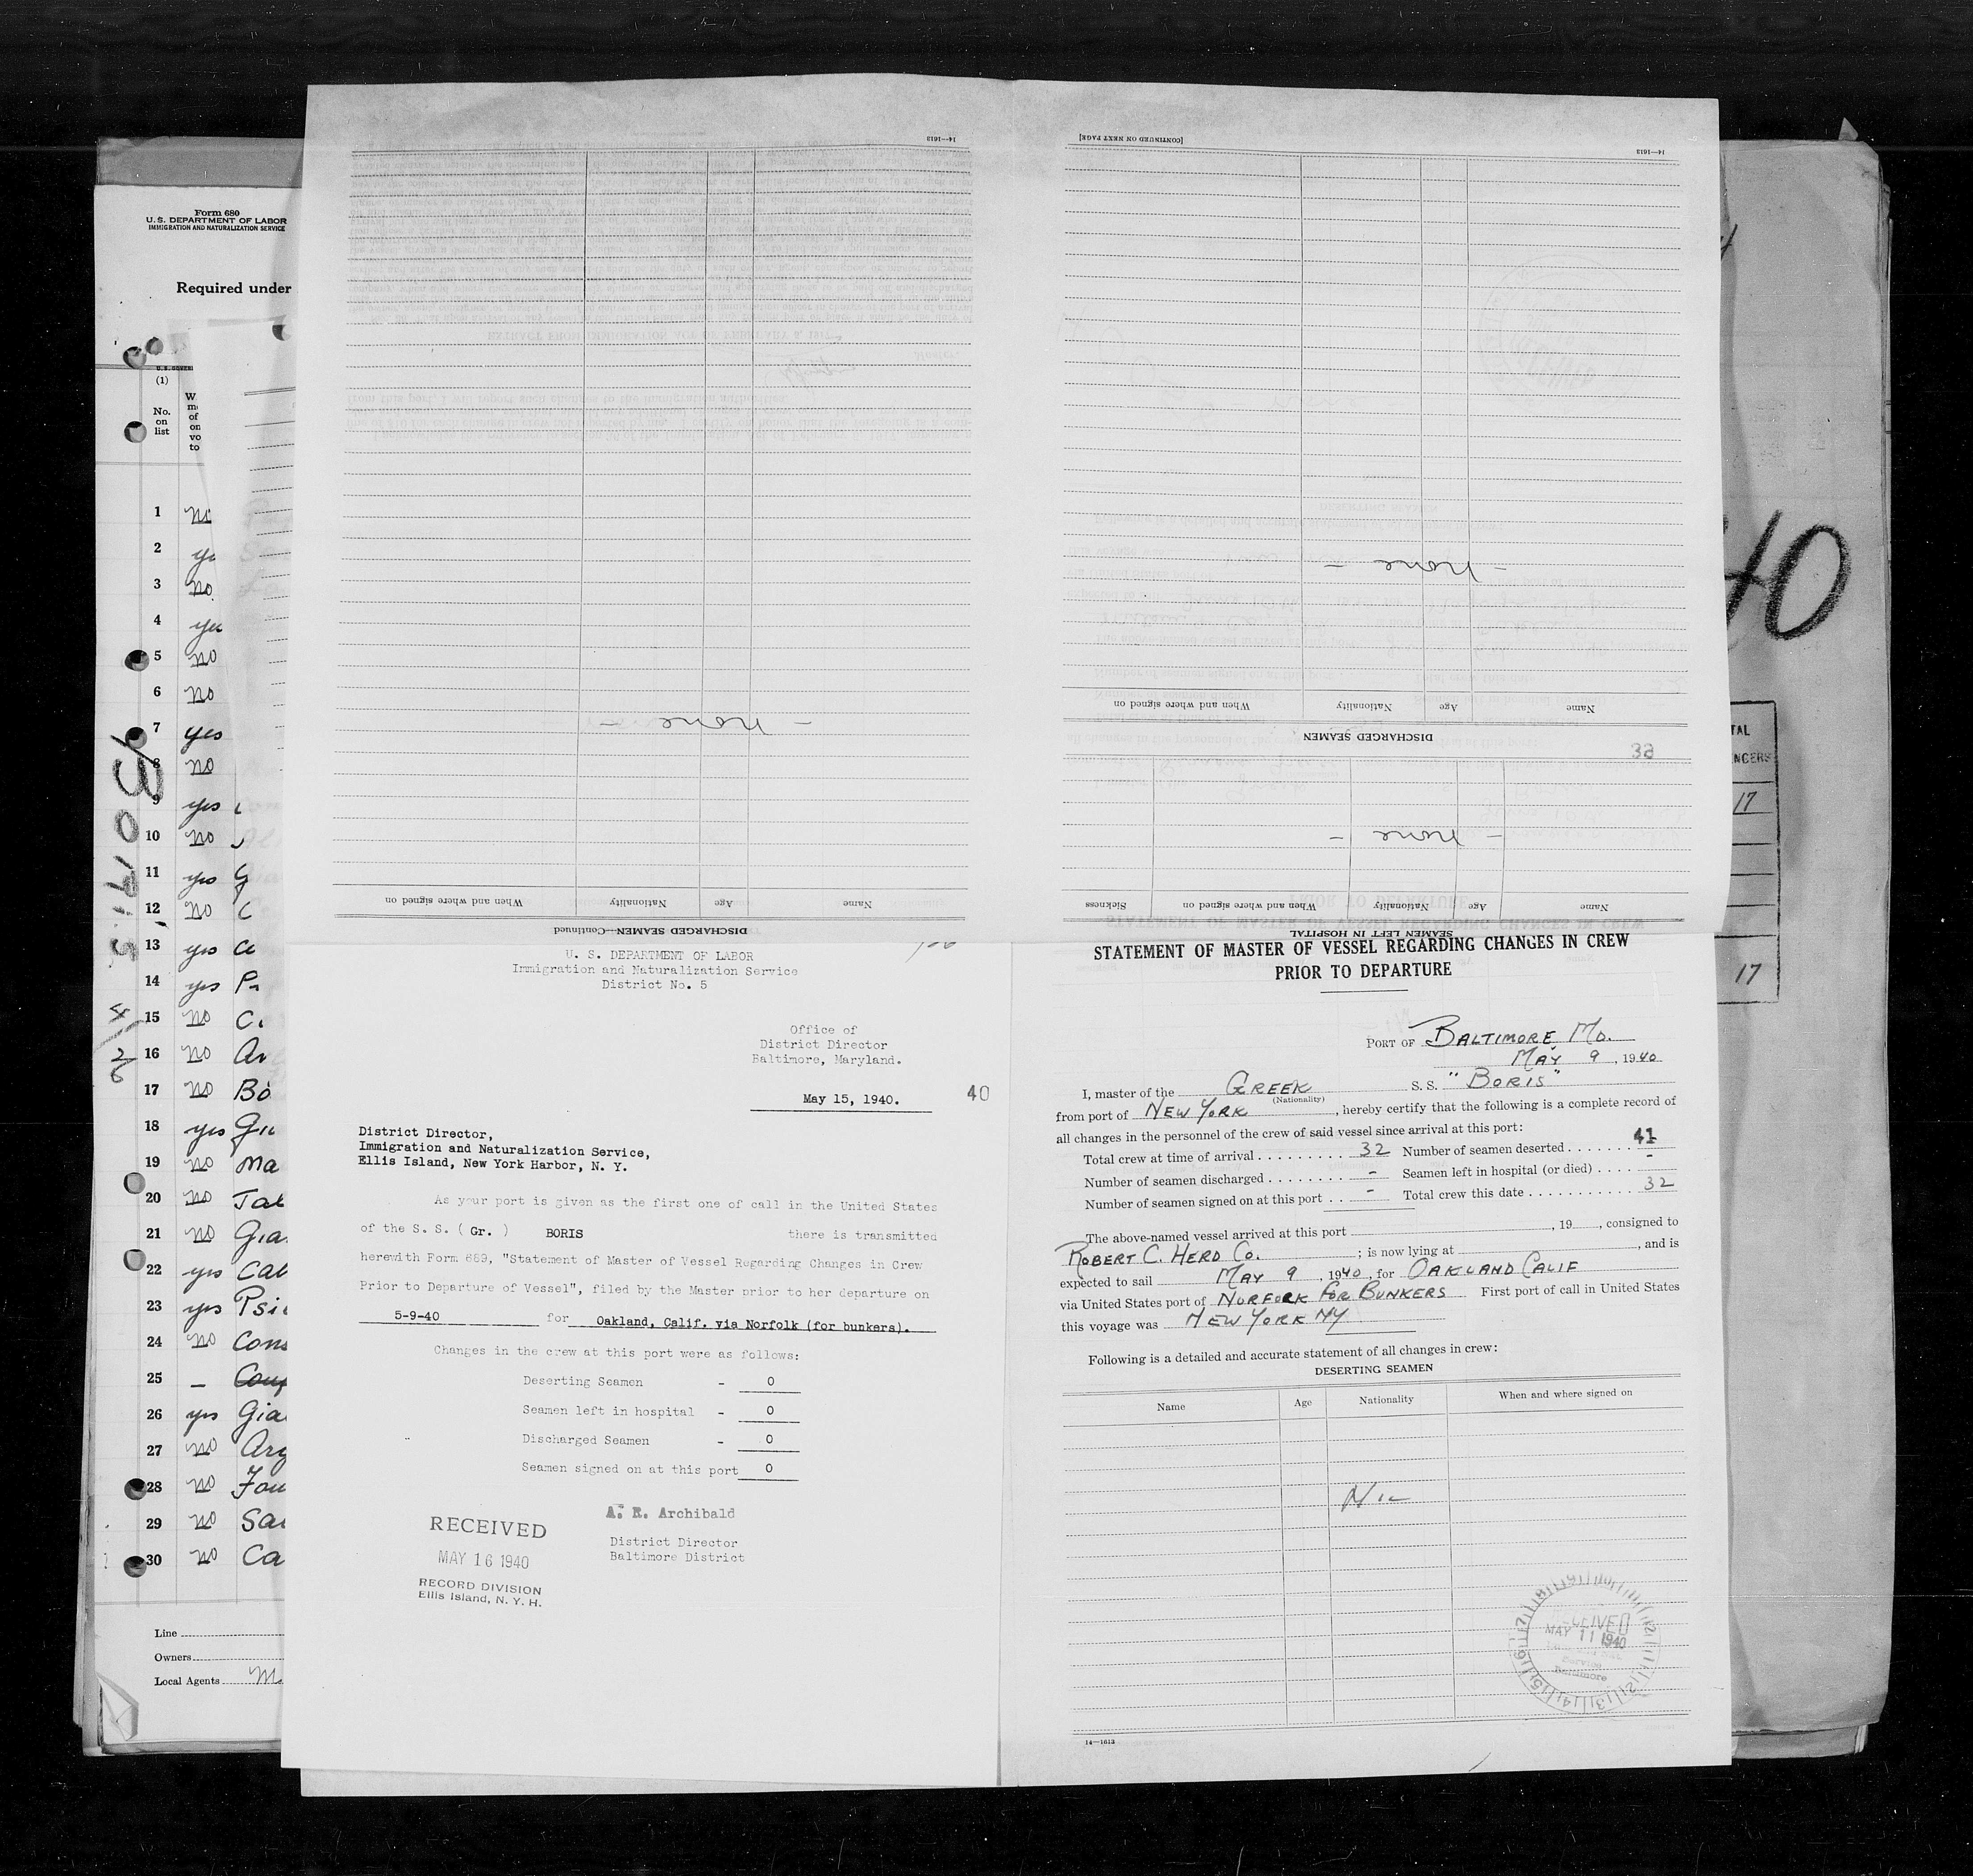 Form 680
U. S. DEPARTMENT OF LABOR
IMMIGRATION AND NATURALIZATION SERVICE
Required under
(1)
No.
on
list
1 no
2
3 no
4
5 no
6 no
7 yes
8 no
9 yes
10 no
11 yes G
12 no C
13 yes
14 yes
15 no
16 no
17 no Bo
18 yes
19 no Ma
20 no
21 no Gia
22 yes Cal
23 yes Psi
24 no Cons
25 –
26 yes Gia
27 no Arg
28 no Fou
29 no Sa
30 no Ca
Line
Owners
Local Agents M
14—1613
- none -
Name Age Nationality When and where signed on
DISCHARGED SEAMEN—Continued
[CONTINUED ON NEXT PAGE]
14—1613
- none -
Name Age Nationality When and where signed on
DISCHARGED SEAMEN
38
- none -
Name Age Nationality When and where signed on Sickness
SEAMEN LEFT IN HOSPITAL
U. S. DEPARTMENT OF LABOR
Immigration and Naturalization Service
District No. 5
Office of
District Director
Baltimore, Maryland.
May 15, 1940.
40
District Director,
Immigration and Naturalization Service,
Ellis Island, New York Harbor, N. Y.
As your port is given as the first one of call in the United States
of the S. S. ( Gr. ) BORIS there is transmitted
herewith Form 689, "Statement of Master of Vessel Regarding Changes in Crew
Prior to Departure of Vessel", filed by the Master prior to her departure on
5-9-40 for Oakland, Calif. via Norfolk (for bunkers).
Changes in the crew at this port were as follows:
Deserting Seamen - 0
Seamen left in hospital - 0
Discharged Seamen - 0
Seamen signed on at this port 0
A. R. Archibald
District Director
Baltimore District
RECEIVED
MAY 16 1940
RECORD DIVISION
Ellis Island, N. Y. H.
STATEMENT OF MASTER OF VESSEL REGARDING CHANGES IN CREW
PRIOR TO DEPARTURE
PORT OF BALTIMORE MD.
MAY 9, 1940
I, master of the GREEK S. S. "BORIS"
(Nationality)
from port of NEW YORK, hereby certify that the following is a complete record of
all changes in the personnel of the crew of said vessel since arrival at this port:
41
Total crew at time of arrival . . . . . . . . . . 32 Number of seamen deserted . . . . . . . -
Number of seamen discharged . . . . . . . . - Seamen left in hospital (or died) . . . .
Number of seamen signed on at this port . . - Total crew this date . . . . . . . . . . . . 32
The above-named vessel arrived at this port , 19 , consigned to
ROBERT C. HERD CO. ; is now lying at , and is
expected to sail MAY 9, 1940, for OAKLAND CALIF
via United States port of NORFORK FOR BUNKERS First port of call in United States
this voyage was NEW YORK NY
Following is a detailed and accurate statement of all changes in crew:
DESERTING SEAMEN
Name Age Nationality When and where signed on
NIL
RECEIVED
MAY 11 1940
Service
Baltimore
14—1613
40
TAL
NGERS
17
17